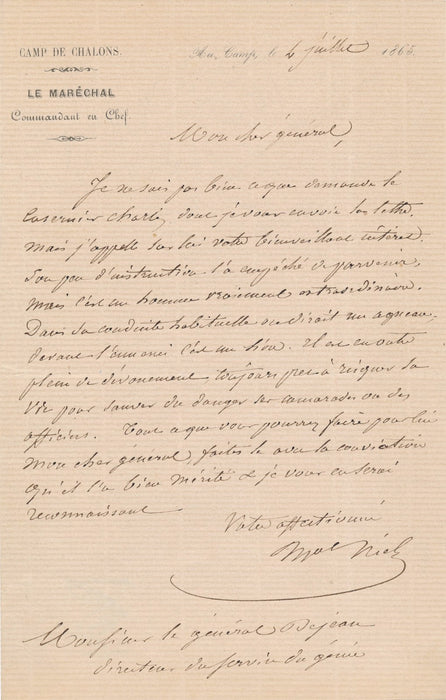 CAMP DE CHALONS.
Au Camp, le 4 juillet 1865.
LE MARÉCHAL
Commandant en Chef.
Mon cher général,
Je ne sais pas bien ce que demande le
casernier Charle, dont je vous envoie la lettre.
mais j'appelle sur lui votre bienveillant intérêt.
Son peu d'instruction l'a empêché de parvenir,
mais c'est un homme vraiment extraordinaire.
Dans sa conduite habituelle on dirait un agneau.
devant l'ennemi c'est un lion. Il est en outre
plein de dévouement toujours prêt à risquer sa
vie pour sauver du danger ses camarades ou des
officiers. Tout ce que vous pourrez faire pour lui
mon cher général, faites le avec la conviction
qu'il l'a bien mérité & je vous en serai
reconnaissant
Votre affectionné
Mal Niel
Monsieur le général Dejean
directeur du service du génie